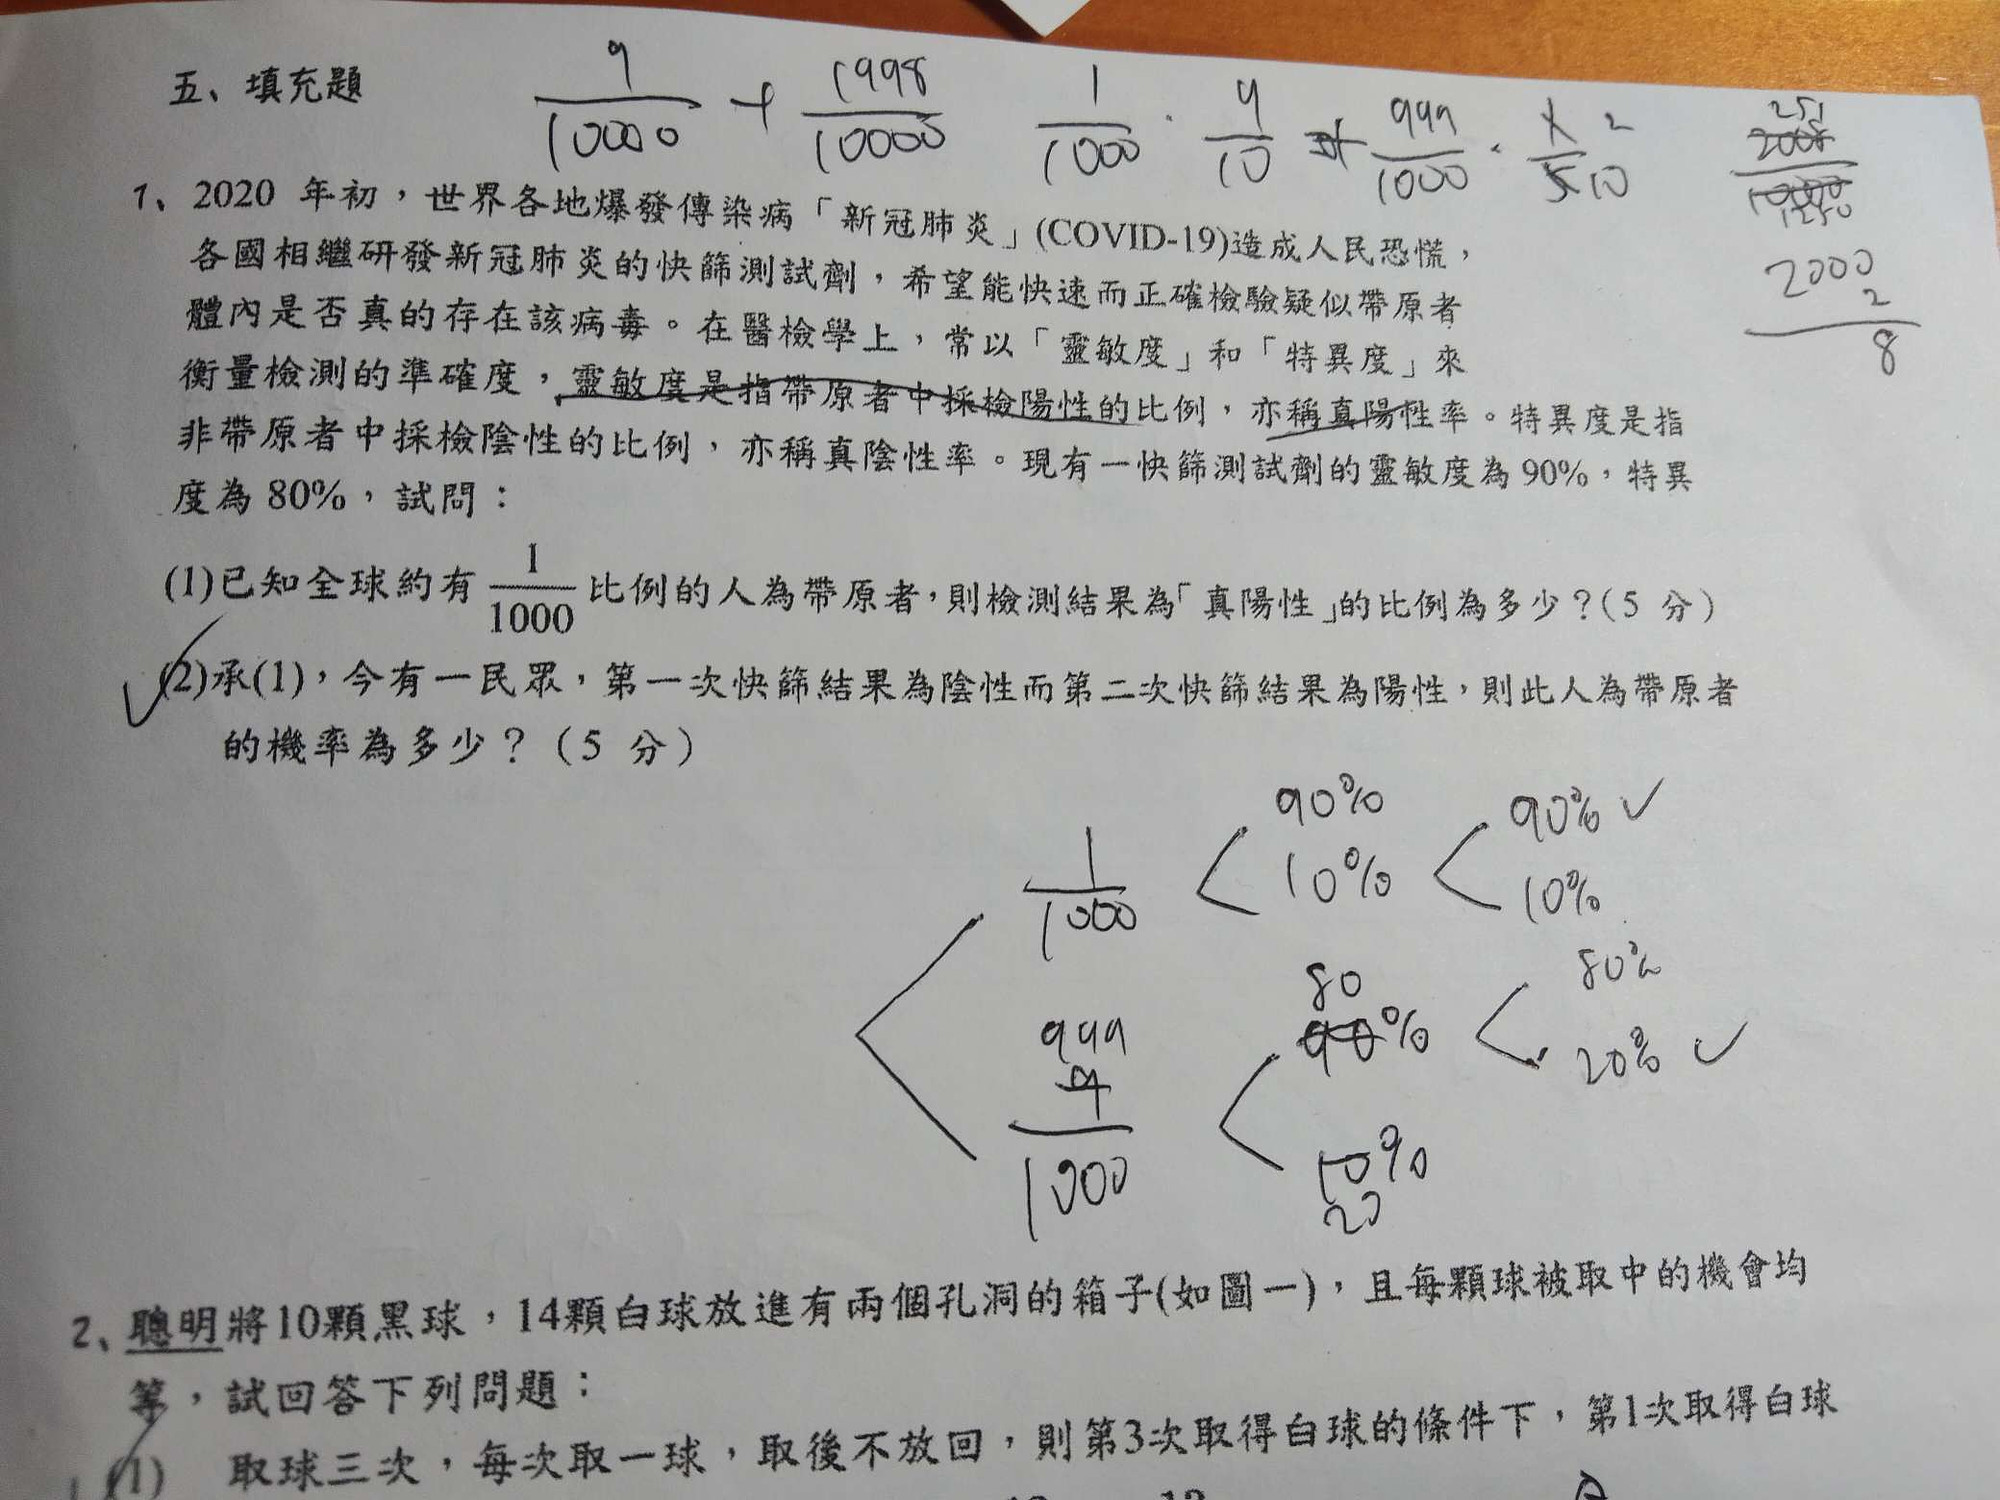 五、填充題
9/10000 + 1998/10000
1/1000 · 9/10 + 999/1000 · 2/10
251
2008
1250
2000
2
8
1、2020 年初，世界各地爆發傳染病「新冠肺炎」(COVID-19)造成人民恐慌，
各國相繼研發新冠肺炎的快篩測試劑，希望能快速而正確檢驗疑似帶原者
體內是否真的存在該病毒。在醫檢學上，常以「靈敏度」和「特異度」來
衡量檢測的準確度，靈敏度是指帶原者中採檢陽性的比例，亦稱真陽性率。特異度是指
非帶原者中採檢陰性的比例，亦稱真陰性率。現有一快篩測試劑的靈敏度為 90%，特異
度為 80%，試問：
(1)已知全球約有 1/1000 比例的人為帶原者，則檢測結果為「真陽性」的比例為多少？(5 分)
(2)承(1)，今有一民眾，第一次快篩結果為陰性而第二次快篩結果為陽性，則此人為帶原者
的機率為多少？(5 分)
1/1000
90%
10%
90% ✓
10%
999/1000
80
90%
10%
20
80%
20% ✓
2、聰明將10顆黑球，14顆白球放進有兩個孔洞的箱子(如圖一)，且每顆球被取中的機會均
等，試回答下列問題：
(1) 取球三次，每次取一球，取後不放回，則第3次取得白球的條件下，第1次取得白球